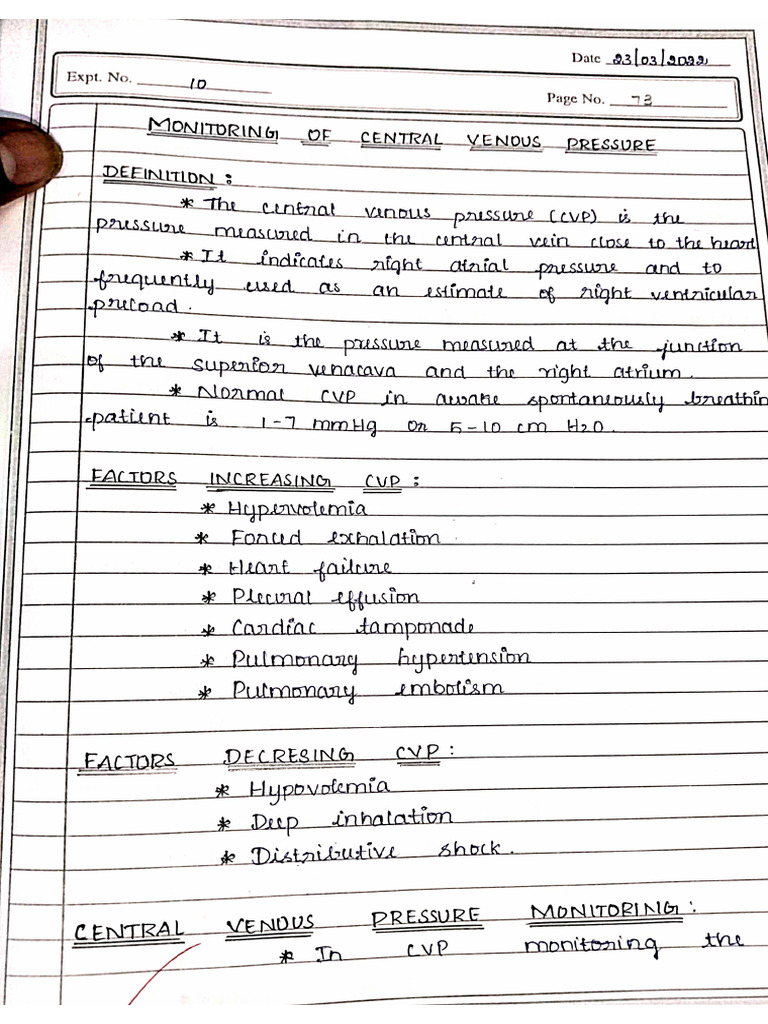 Date 23/03/2022
Expt. No. 10
Page No. 73
MONITORING OF CENTRAL VENOUS PRESSURE
DEFINITION :
* The central venous pressure (CVP) is the
pressure measured in the central vein close to the heart
* It indicates right atrial pressure and to
frequently used as an estimate of right ventricular
preload.
* It is the pressure measured at the junction
of the superior venacava and the right atrium.
* Normal CVP in awake spontaneously breathin
patient is 1-7 mmHg or 5-10 cm H2O.
FACTORS INCREASING CVP :
* Hypervolemia
* Forced exhalation
* Heart failure
* Pleural effusion
* Cardiac tamponade
* Pulmonary hypertension
* Pulmonary embolism
FACTORS DECRESING CVP :
* Hypovolemia
* Deep inhalation
* Distributive shock.
CENTRAL VENOUS PRESSURE MONITORING :
* In CVP monitoring the